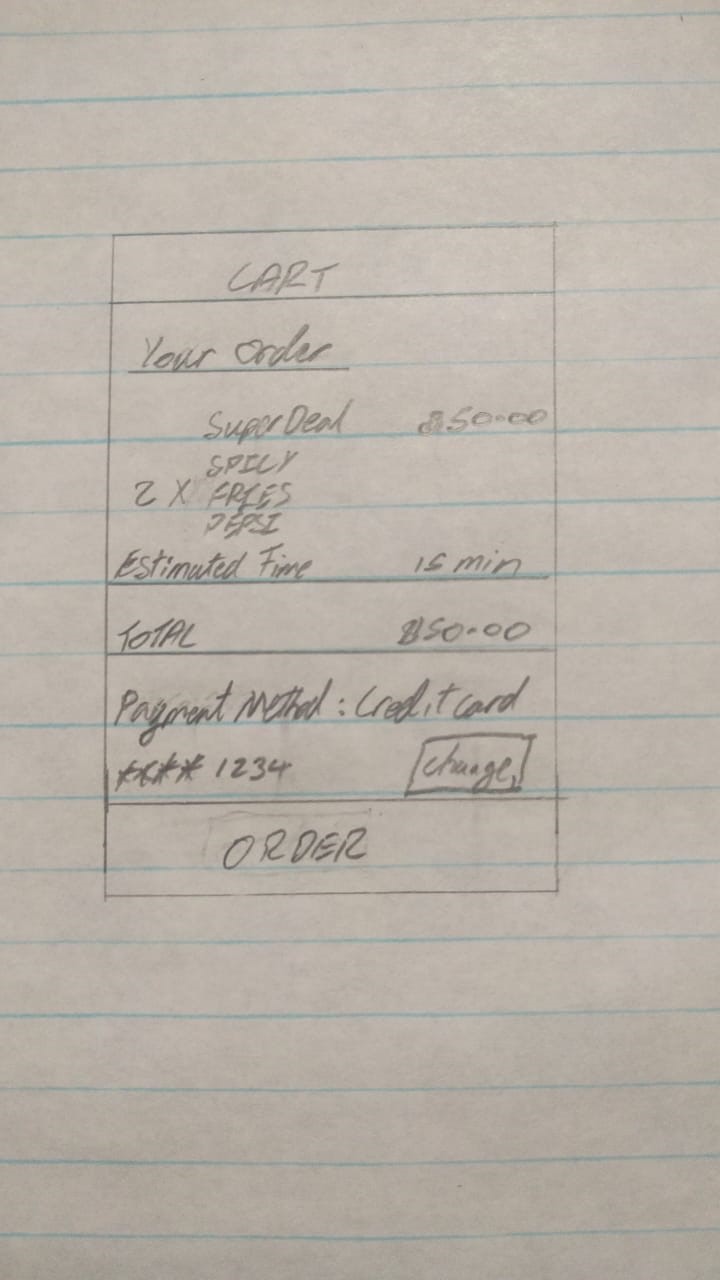 CART
Your Order
Super Deal $50.00
SPICY
2 X FRIES
PEPSI
Estimated Time 15 min
TOTAL $50.00
Payment Method: Credit card
**** 1234 change
ORDER